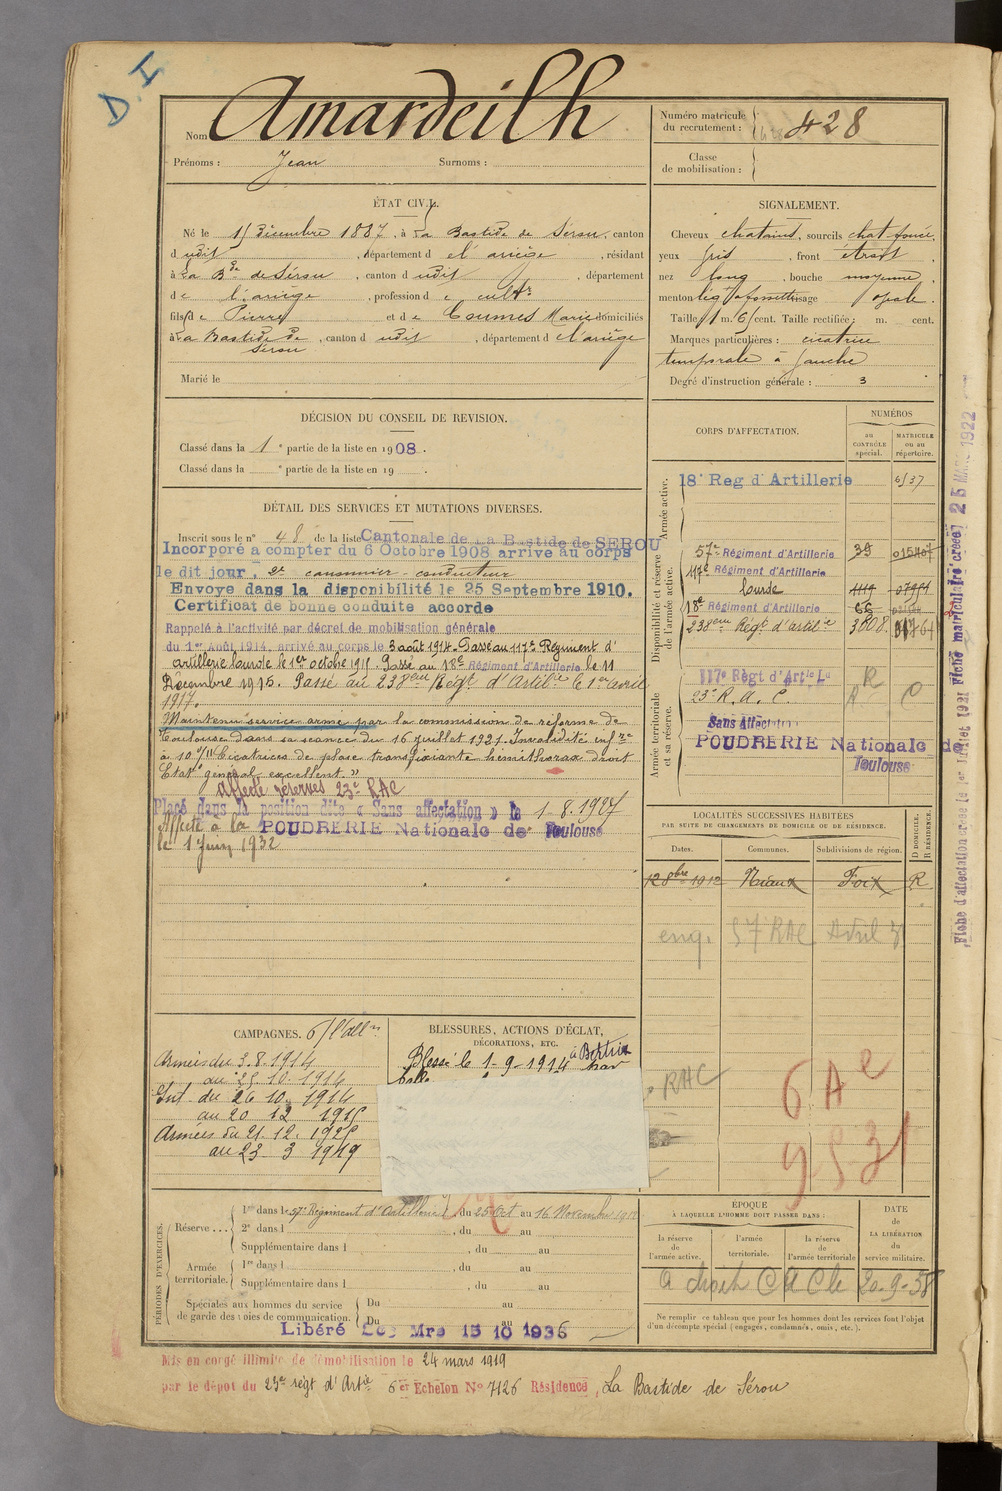 D. I
Nom Amardeilh
Prénoms : Jean Surnoms :
Numéro matricule du recrutement : 428
Classe de mobilisation :
ÉTAT CIVIL.
Né le 15 Décembre 1887, à La Bastide de Sérou, canton
d udit, département d e l'ariège, résidant
à La Bde de Sérou, canton d udit, département
d e l'ariège, profession d e cultr
fils d e Pierre et d e Coumes Marie domiciliés
à La Bastide de Sérou, canton d udit, département d e l'ariège
Marié le
SIGNALEMENT.
Cheveux chatains, sourcils chat foncé,
yeux gris, front étroit,
nez long, bouche moyenne,
menton lég à fossette visage ovale.
Taille 1 m. 65 cent. Taille rectifiée : m. cent.
Marques particulières : cicatrice
temporale à gauche
Degré d'instruction générale : 3
DÉCISION DU CONSEIL DE REVISION.
Classé dans la 1e partie de la liste en 1908.
Classé dans la e partie de la liste en 19 .
DÉTAIL DES SERVICES ET MUTATIONS DIVERSES.
Inscrit sous le n° 48 de la liste Cantonale de La Bastide de SEROU
Incorporé a compter du 6 Octobre 1908 arrivé au corps
le dit jour, 2e canonnier-conducteur
Envoyé dans la disponibilité le 25 Septembre 1910.
Certificat de bonne conduite accordé
Rappelé à l'activité par décret de mobilisation générale
du 1er Août 1914, arrivé au corps le 3 août 1914. Passé au 117e Régiment d'
artillerie lourde le 1er octobre 1915. Passé au 18e Régiment d'Artillerie le 11
Décembre 1915. Passé au 238eme Régt d'Artilie le 1er avril
1917.
Maintenu service armé par la commission de réforme de
Toulouse dans sa séance du 16 juillet 1921. Invalidité infre
à 10 % "Cicatrices de plaie transfixiante hémithorax droit
Etat général excellent."
Affecté réserves 23e RAC
Placé dans la position dite « Sans affectation » le 1-8-1927
Affecté à la POUDRERIE Nationale de Toulouse
le 1 Juin 1932
CORPS D'AFFECTATION.
NUMÉROS
au CONTRÔLE spécial.
MATRICULE ou au répertoire.
Armée active.
18e Reg d'Artillerie
Disponibilité et réserve de l'armée active.
57e Régiment d'Artillerie 39
117e Régiment d'Artillerie
lourde 1119
18e Régiment d'Artillerie 66
238eme Régt d'artilie 3808
Armée territoriale et sa réserve.
117e Règt d'Artie Lde
23e R. A. C. R
Sans Affectation
POUDRERIE Nationale de
Toulouse
LOCALITÉS SUCCESSIVES HABITÉES
PAR SUITE DE CHANGEMENTS DE DOMICILE OU DE RÉSIDENCE.
Dates. Communes. Subdivisions de région. D DOMICILE. R RÉSIDENCE.
12 8bre 1912 Foix R
57 RAC
RAC
6 Ae
9-5-31
CAMPAGNES. C/ l'allne
Armées du 3.8.1914
au 25.10.1914
Int. du 26 10 1914
au 20 12 1915
Armées du 21.12.1915
au 23 3 1919
BLESSURES, ACTIONS D'ÉCLAT,
DÉCORATIONS, ETC.
Blessé le 1-9-1914 à Bertrix par
balle
PÉRIODES D'EXERCICES.
Réserve ... 1re dans le 57e Régiment d'Artillerie, du 25 Oct au 16 Novembre 1912
2e dans l , du au
Supplémentaire dans l , du au
Armée territoriale. 1re dans l , du au
Supplémentaire dans l , du au
Spéciales aux hommes du service de garde des voies de communication. Du au
Du au
Libéré Mre 15 10 1936
ÉPOQUE
À LAQUELLE L'HOMME DOIT PASSER DANS :
la réserve de l'armée active.
l'armée territoriale.
la réserve de l'armée territoriale
DATE de LA LIBÉRATION du service militaire.
20-9-38
Ne remplir ce tableau que pour les hommes dont les services font l'objet
d'un décompte spécial (engagés, condamnés, omis, etc.).
Mis en congé illimité de démobilisation le 24 mars 1919
par le dépôt du 23e régt d'Artie 6er Echelon No 7126 Résidence, La Bastide de Sérou
Fiche matriculaire créée 25 MARS 1922